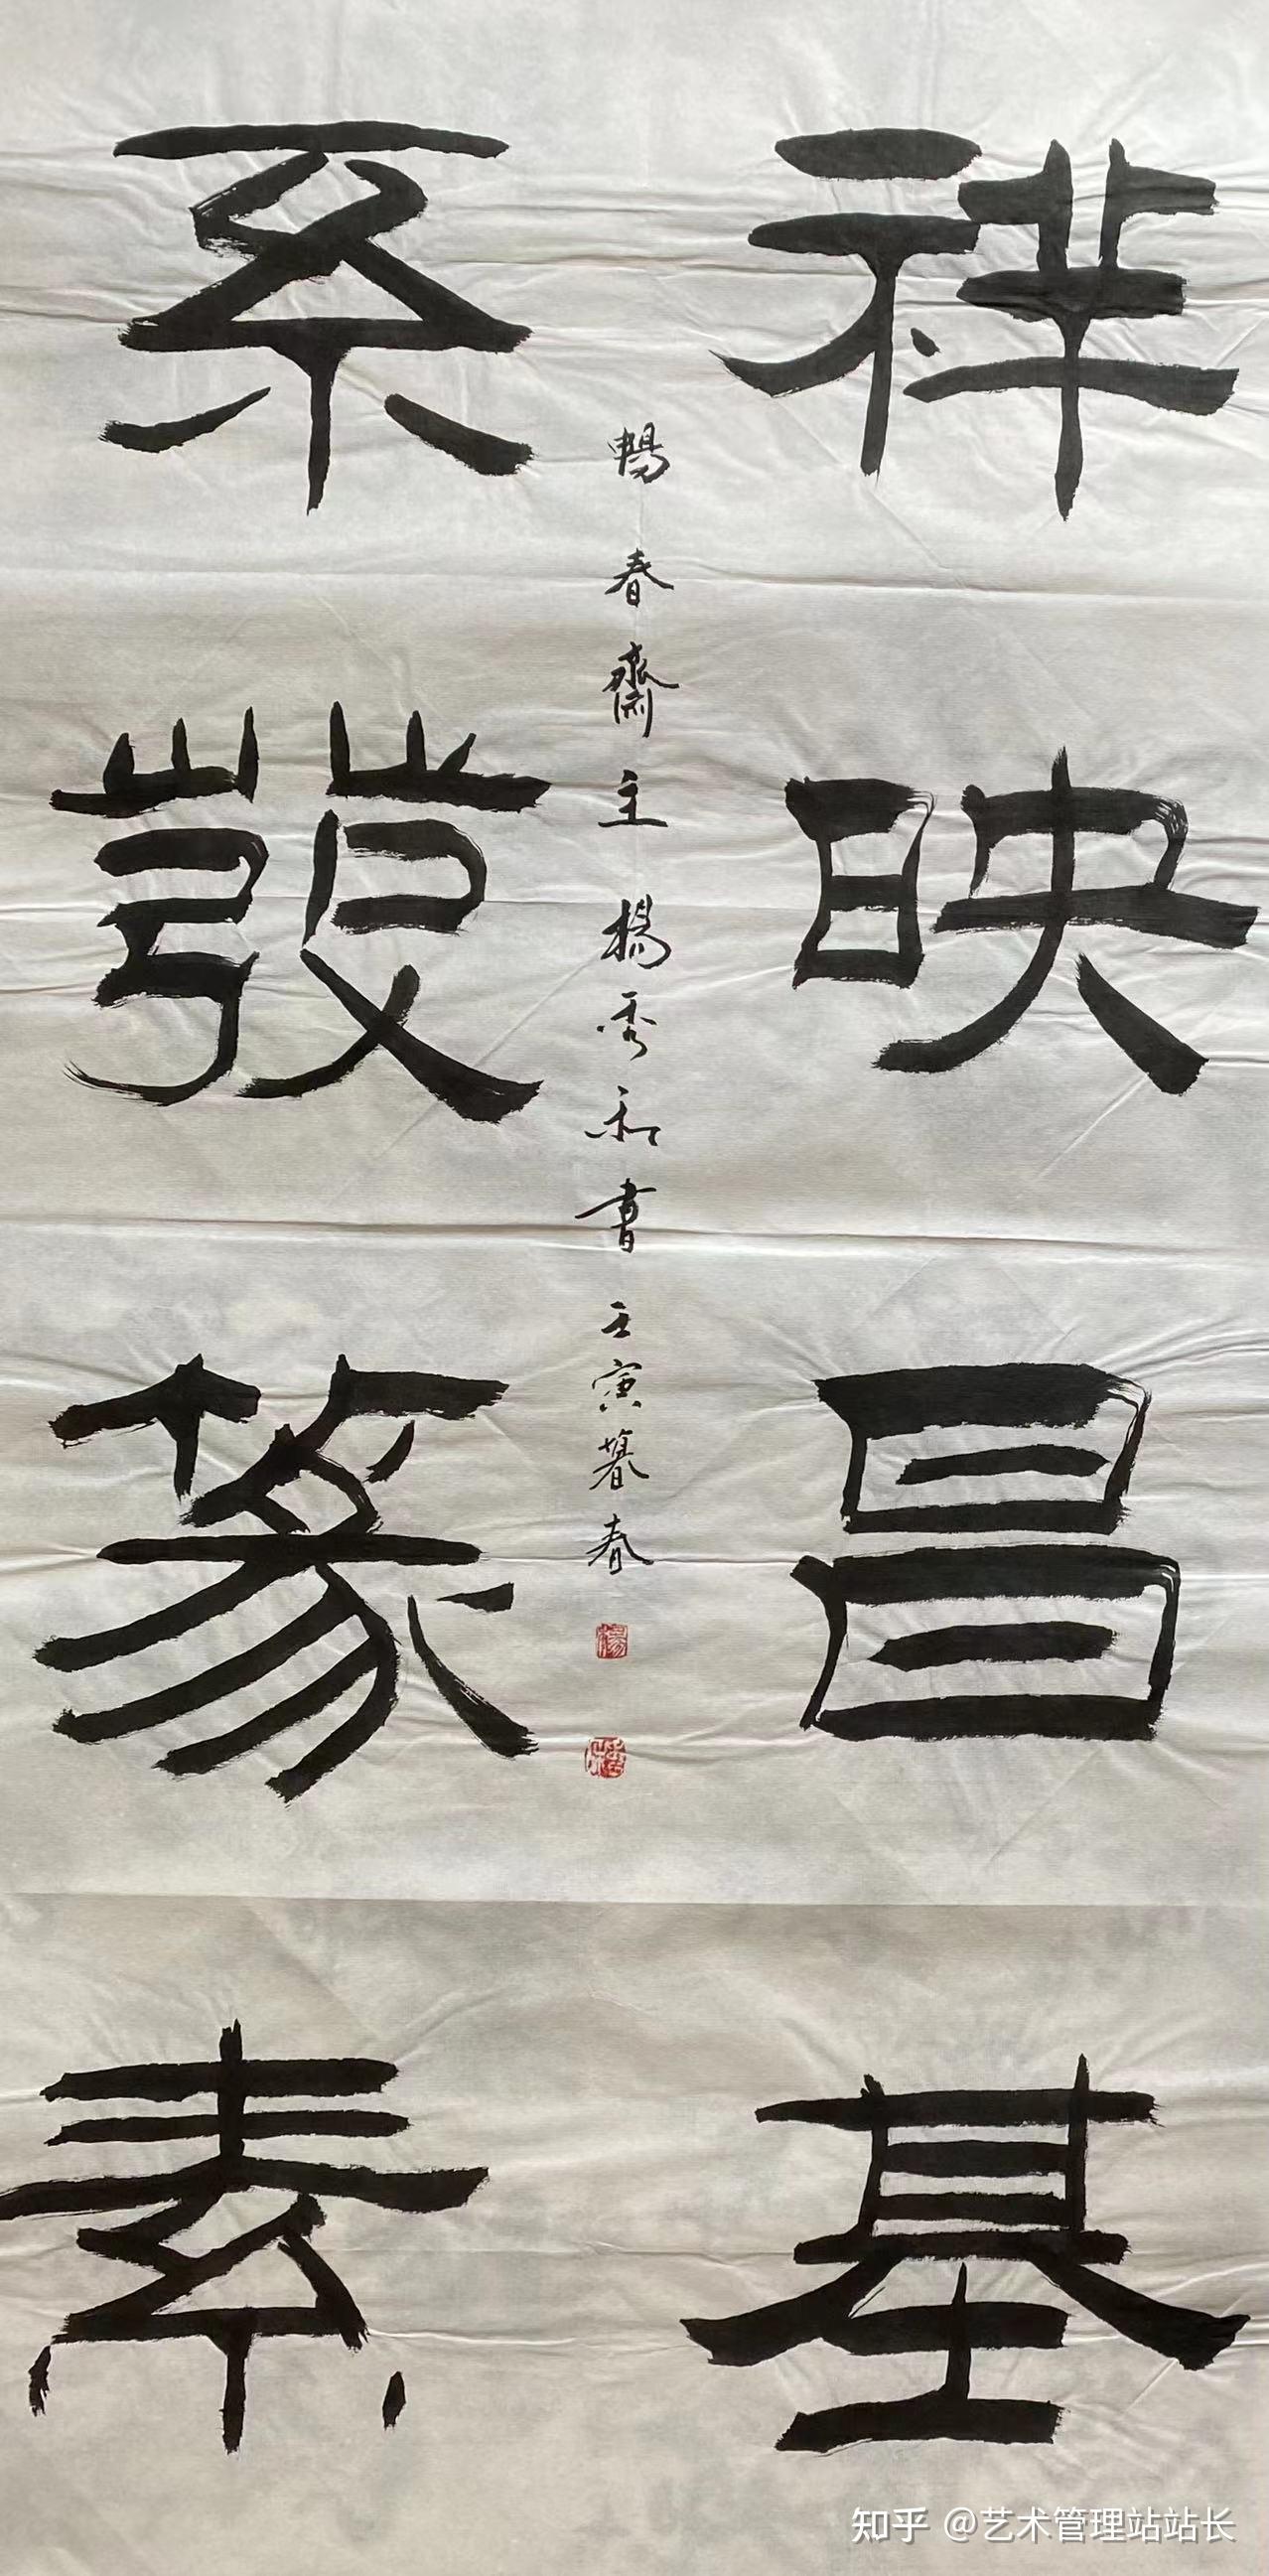 祥映昌基
系發篆素
暢春齋主楊秀和書 壬寅暮春
楊
知乎 @艺术管理站站长